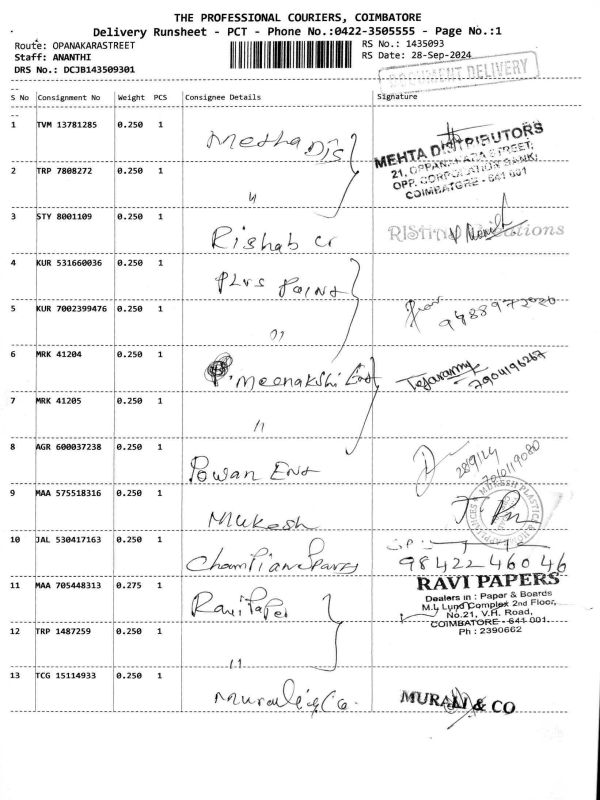 THE PROFESSIONAL COURIERS, COIMBATORE
Delivery Runsheet - PCT - Phone No.:0422-3505555 - Page No.:1
Route: OPANAKARASTREET
RS No.: 1435093
Staff: ANANTHI
RS Date: 28-Sep-2024
DRS No.: DCJB143509301
DOCUMENT DELIVERY
S No Consignment No Weight PCS Consignee Details Signature
1 TVM 13781285 0.250 1 Metha Dis
MEHTA DISTRIBUTORS
21, OPPANAKARA STREET,
OPP. CORPORATION BANK,
COIMBATORE - 641 001
2 TRP 7808272 0.250 1 "
3 STY 8001109 0.250 1 Rishab Cr
4 KUR 531660036 0.250 1 Plus Point
5 KUR 7002399476 0.250 1 "
6 MRK 41204 0.250 1 Meenakshi Ent
Tejaramm 7904196267
7 MRK 41205 0.250 1 "
8 AGR 600037238 0.250 1 Powan Ent
28/9/24
9 MAA 575518316 0.250 1 Mukesh
10 JAL 530417163 0.250 1 Champian Sparys
98422 46046
11 MAA 705448313 0.275 1 Ravi Paper
RAVI PAPERS
Dealers in : Paper & Boards
M.L Lund Complex 2nd Floor,
No.21, V.H. Road,
COIMBATORE - 641 001.
Ph : 2390662
12 TRP 1487259 0.250 1 "
13 TCG 15114933 0.250 1 Murali & Co.
MURALI & CO